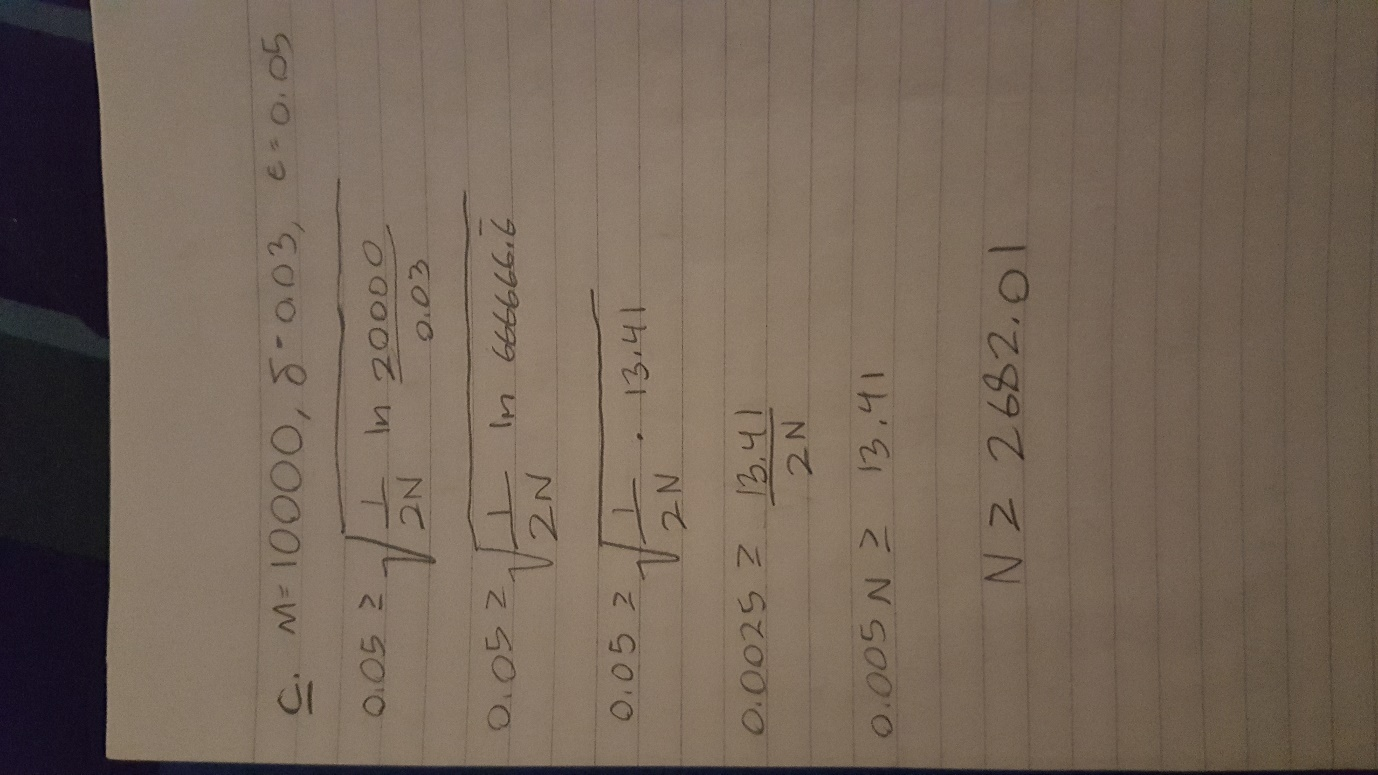 c. M=10000, δ=0.03, ϵ=0.05
0.05 ≥ √(1/2N ln 20000/0.03)
0.05 ≥ √(1/2N ln 666666.6̅)
0.05 ≥ √(1/2N · 13.41)
0.0025 ≥ 13.41/2N
0.005N ≥ 13.41
N ≥ 2682.01